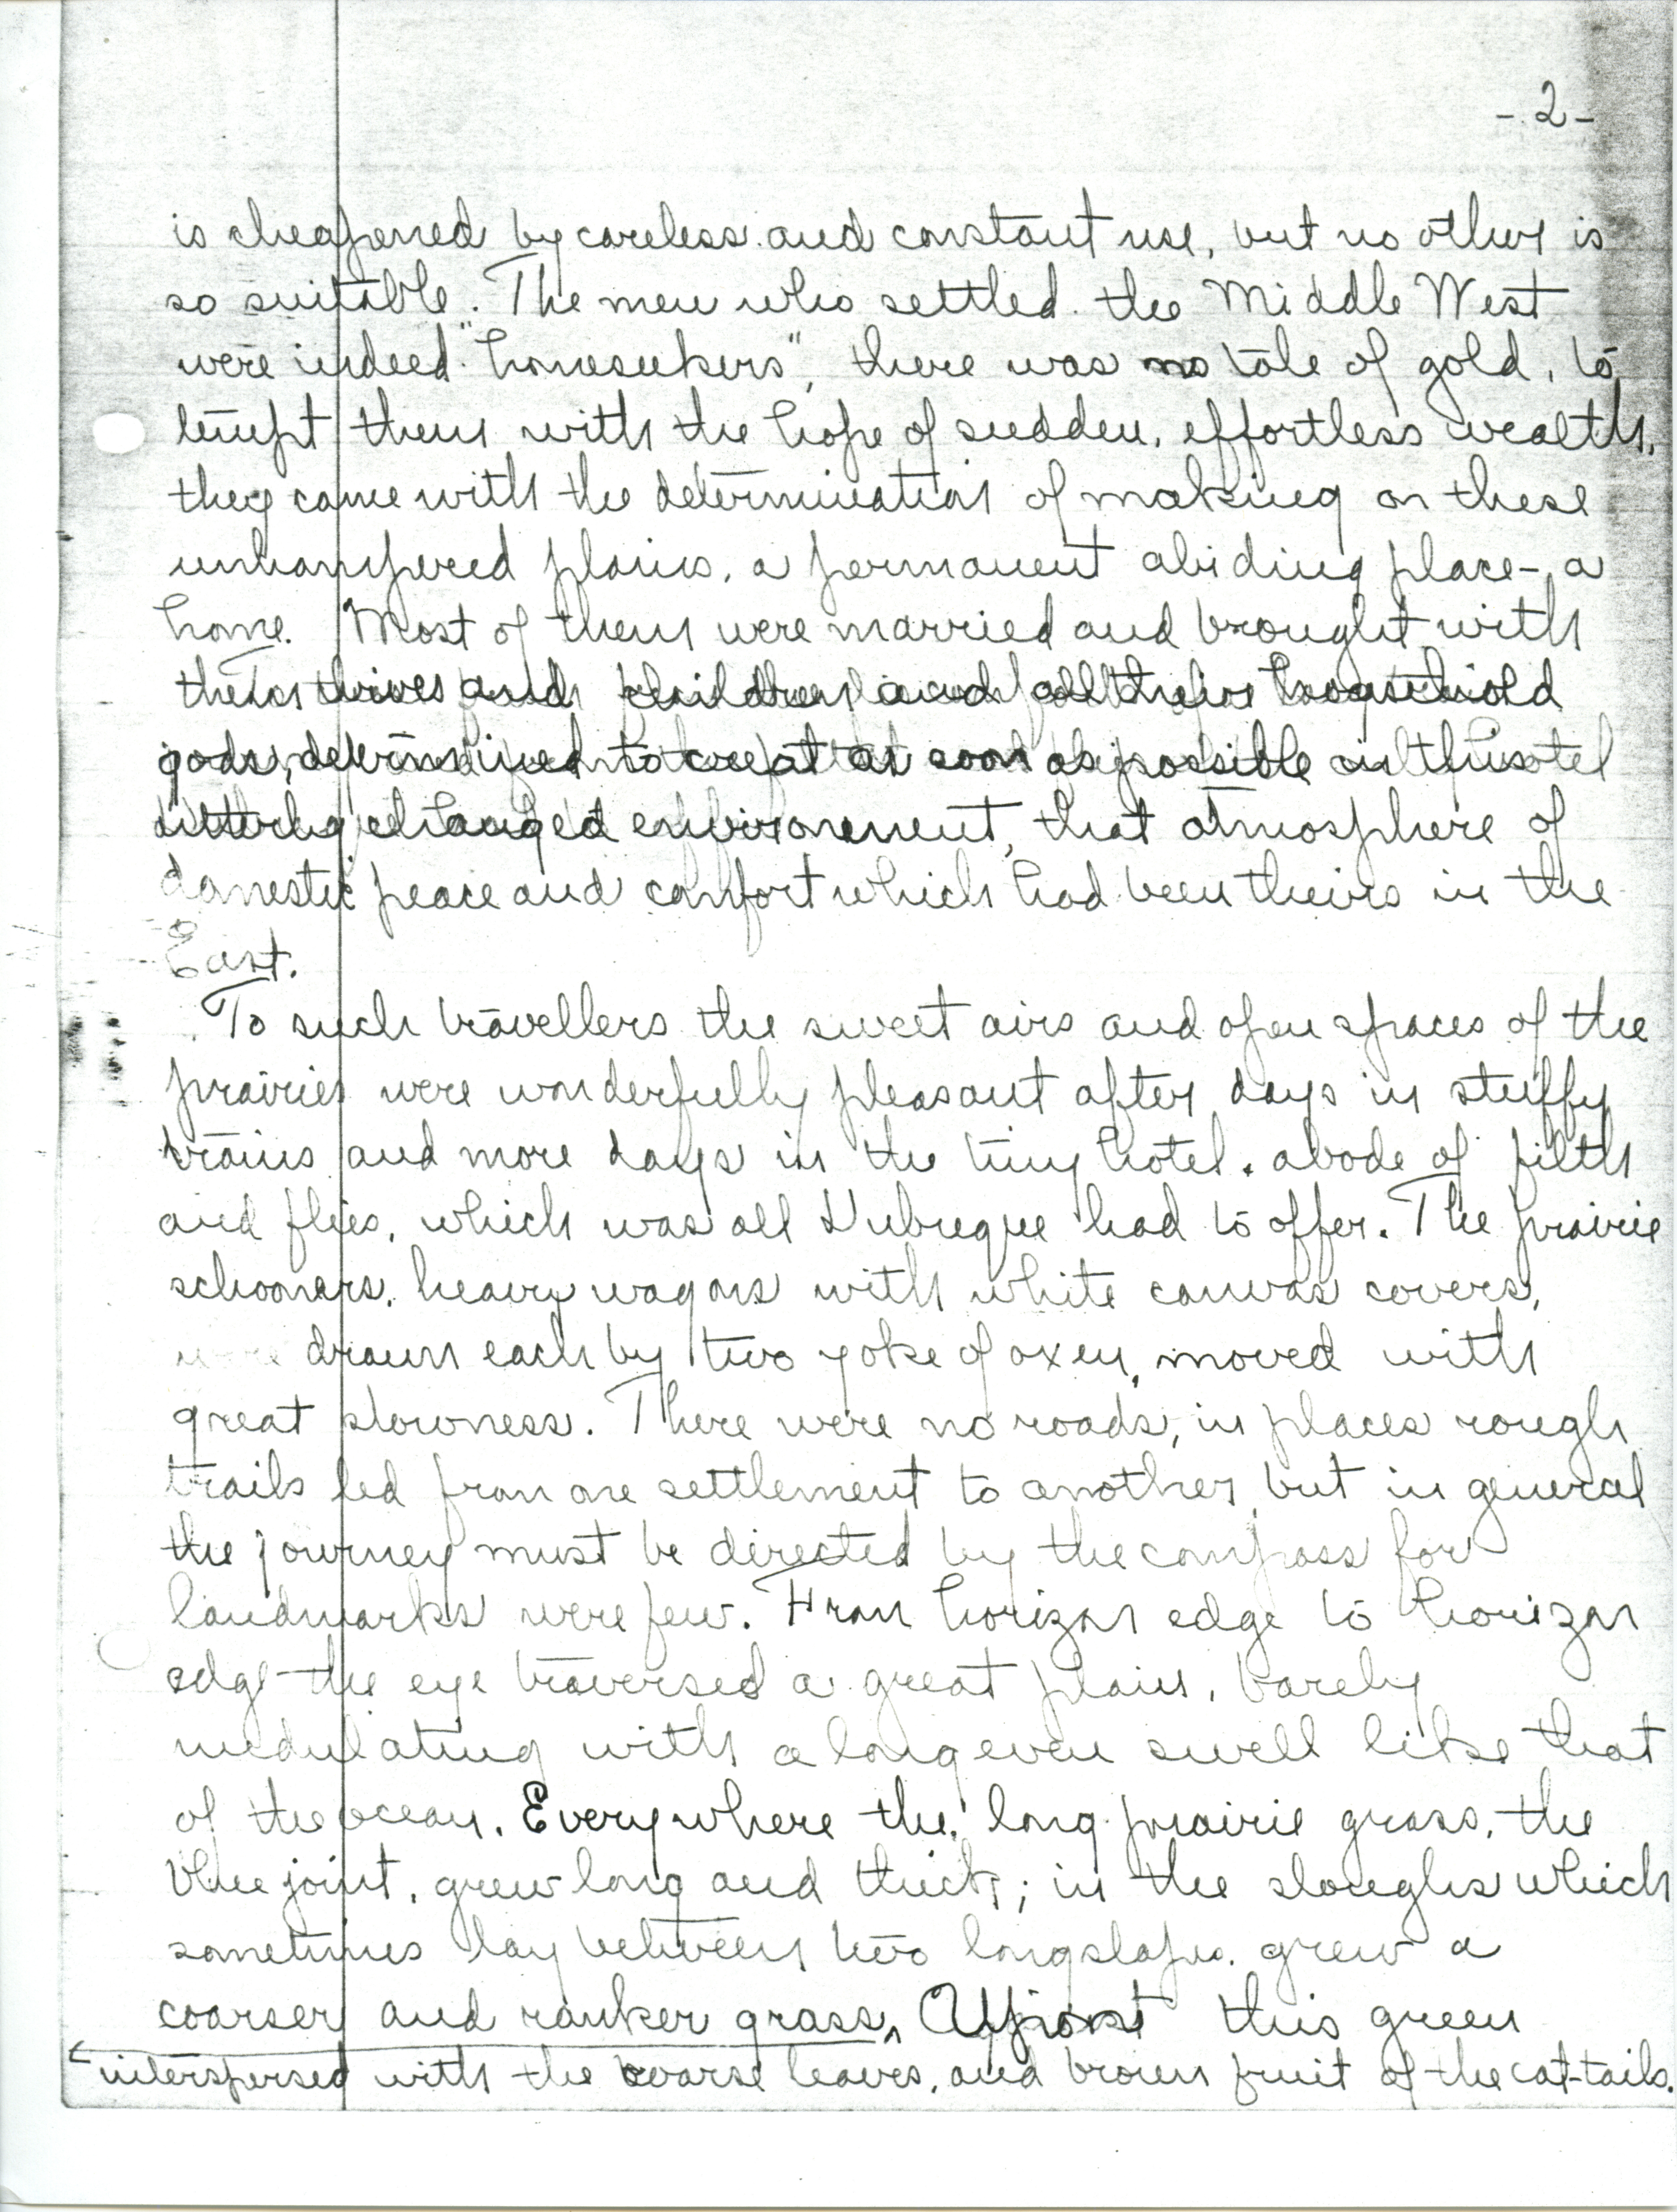 - 2 -
is cheapened by careless and constant use, but no other is
so suitable. The men who settled the Middle West
were indeed "homeseekers", there was no tale of gold, to
tempt them with the hope of sudden, effortless wealth,
they came with the determination of making on these
unhampered plains, a permanent abiding place-, a
home. Most of them were married and brought with
them wives and children and all their household
gods, determined to creat as soon as possible in this
utterly changed environment, that atmosphere of
domestic peace and comfort which had been theirs in the
East.
To such travellers the sweet airs and open spaces of the
prairies were wonderfully pleasant after days in stuffy
trains and more days in the tiny hotel, abode of filth
and flies, which was all Dubuque had to offer. The prairie
schooners, heavy wagons with white canvas covers,
were drawn each by two yoke of oxen, moved with
great slowness. There were no roads, in places rough
trails led from one settlement to another, but in general
the journey must be directed by the compass for
landmarks were few. From horizon edge to horizon
edge the eye traversed a great plain, barely
undulating with a long even swell like that
of the ocean. Everywhere the long prairie grass, the
blue joint, grew long and thick; in the sloughs which
sometimes lay between two long slopes, grew a
coarser and ranker grass, Against this green
interspersed with the coarse leaves, and brown fruit of the cat-tails.